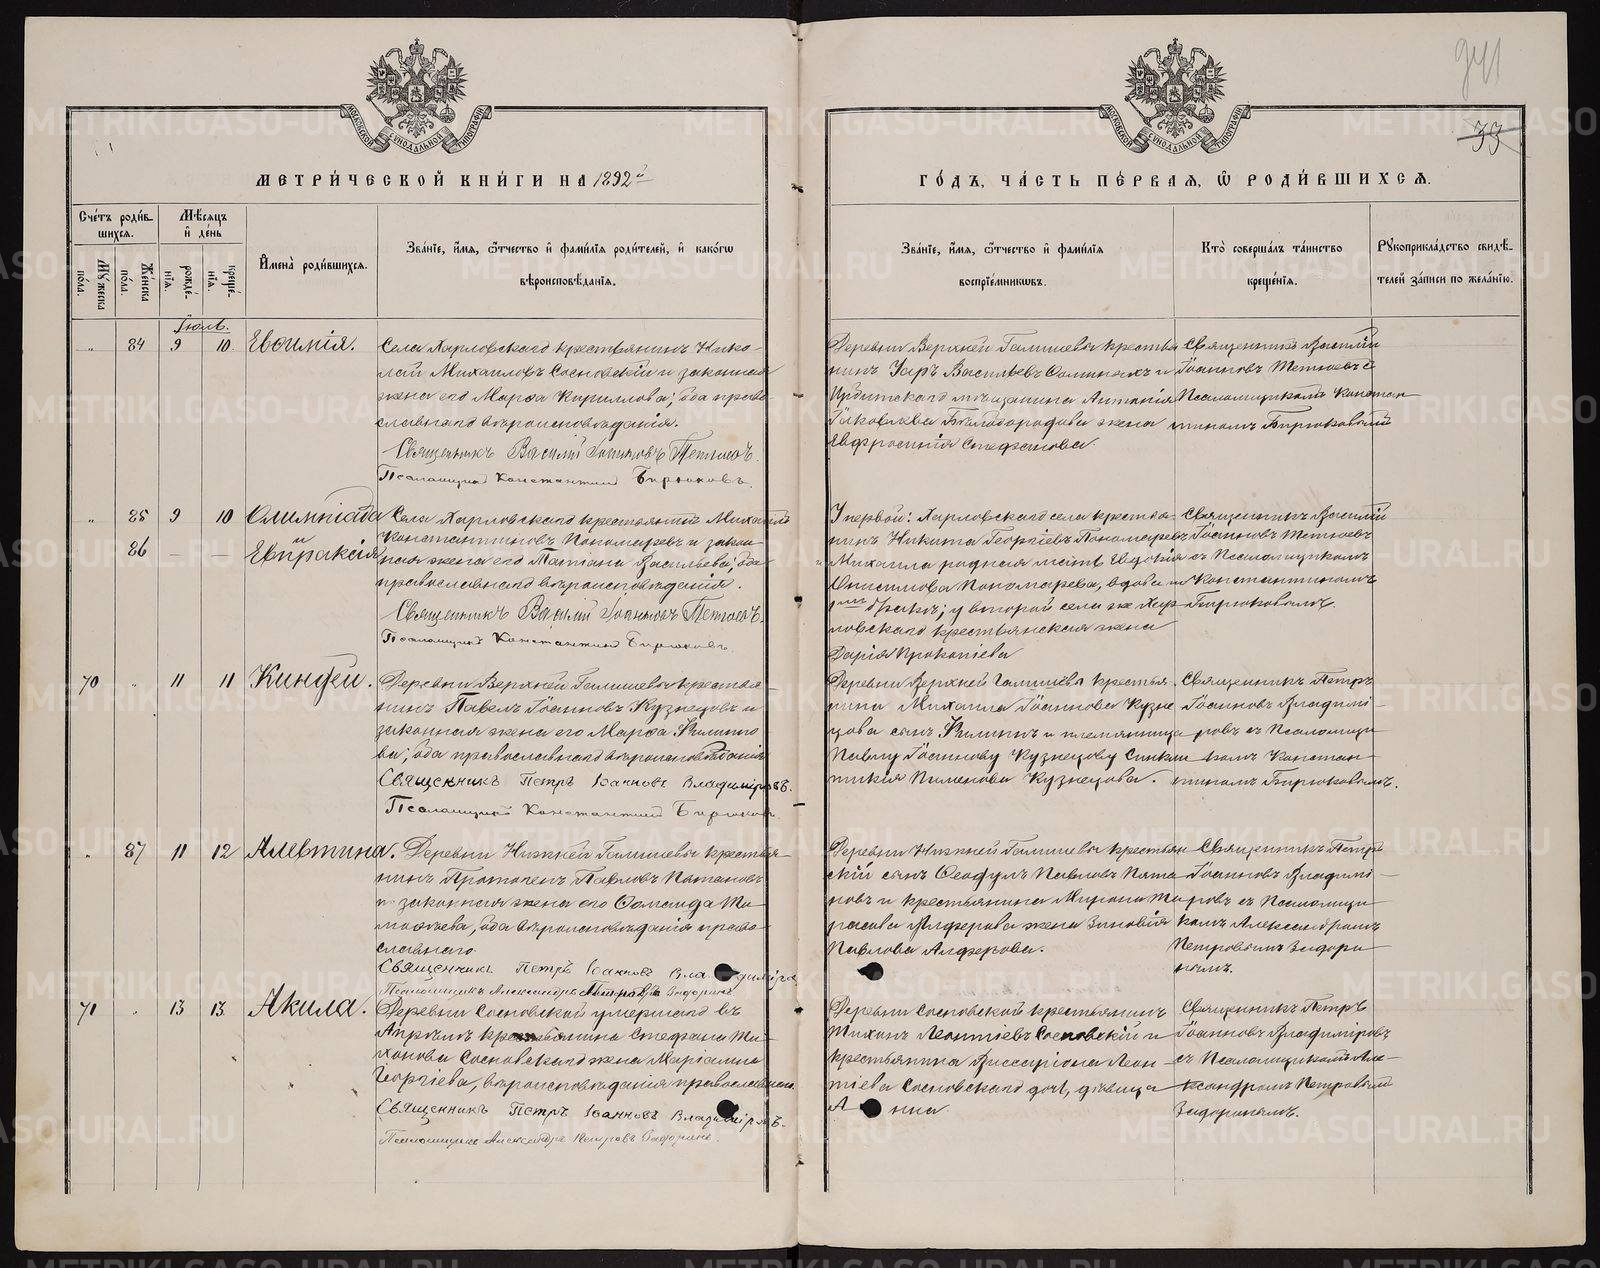 941
33
МОСКОВСКОЙ СѴНОДАЛЬНОЙ ТИПОГРАФІИ
МОСКОВСКОЙ СѴНОДАЛЬНОЙ ТИПОГРАФІИ
МЕТРИ́ЧЕСКОЙ КНИ́ГИ НА 1892й
ГО́ДЪ, ЧА́СТЬ ПЕ́РВАЯ, Ѡ РОДИ́ВШИХСЯ.
Сче́тъ роди́в-
шихся.
Мѣ́сяцъ
и де́нь
Му́жеска
по́ла.
Же́нска
по́ла.
рожде́-
нїя.
креще́-
нїя.
И҆мена̀ роди́вшихся.
Зва́нїе, и҆́мя, ѻ҆́тчество и҆ фами́лїя роди́телей, и҆ како́гѡ
вѣроисповѣ́данїя.
Зва́нїе, и҆́мя, ѻ҆́тчество и҆ фами́лїя
воспрїе́мниковъ.
Кто̀ соверша́лъ та́инство
креще́нїя.
Рꙋкоприкла́дство свидѣ́-
телей за́писи по жела́нїю.
Іюль.
„ 84 9 10 Евѳимія.
Села Харловскаго крестьянинъ Нико-
лай Михаиловъ Сосновскій и законная
жена его Марѳа Кириллова; оба право-
славнаго вѣроисповѣданія.
Священникъ Василій Іоанновъ Тетюевъ.
Псаломщикъ Константинъ Бирюковъ.
Деревни Верхней Галишевой крестья-
нинъ Уаръ Васильевъ и
Ирбитскаго мѣщанина Антонія
Іаковлева Бѣлобородова жена
Евфросинія Стефанова.
Священникъ Василій
Іоанновъ Тетюевъ съ
Псаломщикомъ Констан-
тиномъ Бирюковымъ
„ 85 9 10 Олимпіада
и
86 — — Евпраксія
Села Харловскаго крестьянинъ Михаилъ
Константиновъ Пономаревъ и закон-
ная жена его Татіана Васильева; оба
православнаго вѣроисповѣданія.
Священникъ Василій Іоанновъ Тетюевъ.
Псаломщикъ Константинъ Бирюковъ.
У первой: Харловскаго села крестья-
нинъ Никита Георгіевъ Пономаревъ
Михаила родная мать Евдокія
Онисимова Пономарева, вдова
бракѣ; у второй села же Хар-
ловскаго крестьянская жена
Дарія Прокопіева
Священникъ Василій
Іоанновъ Тетюевъ
съ Псаломщикомъ
Константиномъ
Бирюковымъ.
70 „ 11 11 Киндей.
Деревни Верхней Галишевой крестья-
нинъ Павелъ Іоанновъ Кузнецовъ и
законная жена его Марѳа Филиппо-
ва; оба православнаго вѣроисповѣданія
Священникъ Петръ Іоанновъ Владиміровъ.
Псаломщикъ Константинъ Бирюковъ
Деревни Верхней Галишевой крестья-
нина Михаила Іоаннова Кузне-
цова сынъ Филиппъ и племянница
Павлу Іоаннову Кузнецову Синкли-
тикія Пименова Кузнецова.
Священникъ Петръ
Іоанновъ Владимі-
ровъ съ Псаломщи-
комъ Констан-
тиномъ Бирюковымъ.
„ 87 11 12 Алевтина.
Деревни Нижней Галишевой крестья-
нинъ Протогенъ Павловъ Потаповъ
и законная жена его Ѳомаида Ти-
моѳѣева, оба вѣроисповѣданія право-
славнаго
Священникъ Петръ Іоанновъ Владиміро
Псаломщикъ Александръ Петровъ Задоринъ
Деревни Нижней Галишевой крестьян-
скій сынъ Ѳеодулъ Павловъ Пота-
повъ и крестьянина Мирона Та-
расова Алферова жена Зиновія
Павлова Алферова.
Священникъ Петръ
Іоанновъ Владимі-
ровъ съ Псаломщи-
комъ Александромъ
Петровымъ Задори-
нымъ.
71 „ 13 13 Акила.
Деревни Сосновской умершаго въ
Апрѣлѣ крестьянина Стефана Ти-
хонова Сосновскаго жена Маріамна
Георгіева, вѣроисповѣданія православнаго
Священникъ Петръ Іоанновъ Владиміровъ.
Псаломщикъ Александръ Петровъ Задоринъ.
Деревни Сосновской крестьянинъ
Тихонъ Леонтіевъ Сосновскій и
крестьянина Виссаріона Леон-
тіева Сосновскаго дочь, дѣвица
Анна
Священникъ Петръ
Іоанновъ Владиміровъ
съ Псаломщикомъ Але-
ксандромъ Петровымъ
Задоринымъ.
METRIKI.GASO-URAL.RU